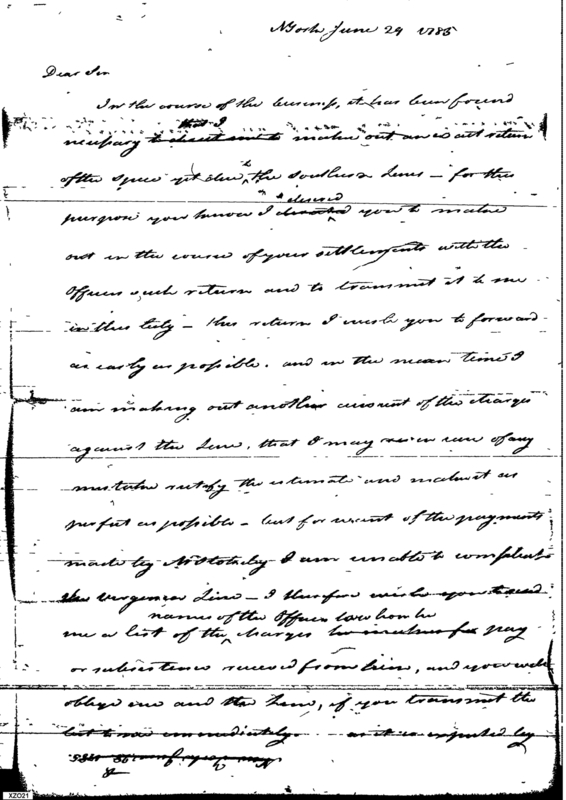 N York June 29 1785
Dear Sir
In the course of the business, it has been found
that I
necessary to make out an exact return
of the specie yet due the Southern Lines – for this
desired
purpose you know I directed you to make
out in the course of your settlements with the
Officers such return and to transmit it to me
in this City – this return I wish you to forward
as early as possible. and in the mean time I
am making out another amount of the charges
against the Line, that I may in case of any
mistake rectify the estimate and make it as
perfect as possible – but for want of the payments
made by Mr Stokeley I am unable to complete
the Virginia Line – I therefore wish you to send
names of the Officers to whom he
me a list of the charges he makes for pay
or subsistence received from him, and you will
oblige me and the Line, if you transmit the
list to me immediately as it is expected by
New York June 29 1785
XZO21